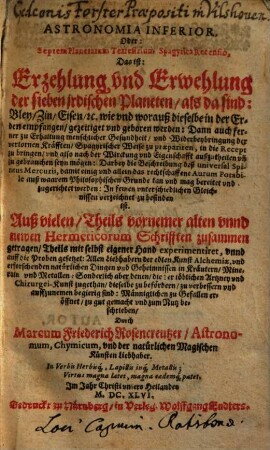 Gedeonis Forster Præpositi in Pilshoven
ASTRONOMIA INFERIOR,
Oder:
Septem Planetarum Terrestrium Spagyrica Recensio,
Das ist:
Erzehlung vnd Erwehlung
der sieben jrdischen Planeten / als da sind:
Bley / Zin / Eisen / ꝛc. wie vnd worauß dieselbe in der Er-
den empfangen / gezeitiget vnd geboren werden: Dann auch fer-
ner zu Erhaltung menschlicher Gesundheit / vnd Widerherbringung der
verlornen Kräfften / Spagyrischer Weise zu præpariren, in die Recept
zu bringen / vnd alßo nach der Wirckung vnd Eigenschafft außzutheilen vñ
zu gebrauchen seyn mögen: Darbey die Beschreibung deß universal Spiri-
tus Mercurii, damit einig vnd allein das rechtschaffene Aurum Potabi-
le auß warem Philosophischen Grunde kan vnd mag bereitet vnd
zugerichtet werden: In seinen vnterschiedlichen Gleich-
nissen verzeichnet zu befinden
ist.
Auß vielen / Theils vornemer alten vnnd
neuen Hermeticorum Schrifften zusammen
getragen / Theils mit selbst eigener Hand experimentiret, vnnd
auff die Proben gesetzt: Allen Liebhabern der edlen Kunst Alchemiæ, vnd
erforschenden natürlichen Dingen vnd Geheimnussen in Kräutern / Mine-
raln vnd Metallen: Sonderlich aber denen / die der löblichen Artzney vnd
Chirurgei-Kunst zugethan / dieselbe zu befördern / zu verbessern vnd
auffzunemen begierig sind: Männiglichen zu Gefallen er-
öffnet / zu gut gemacht vnd zum Nutz be-
schrieben /
Durch
Marcum Friederich Rosencreutzer / Astrono-
mum, Chymicum, vnd der natürlichen Magischen
Künsten Liebhaber.
In Verbis Herbisq́, Lapillis inq́ Metallis;
Virtus magna latet, magna eademq́ patet.
Im Jahr Christi vnsers Heilandes
M. DC. XLVI.
Gedruckt zu Nürnberg / in Verleg. Wolffgang Endters.
Loci Capucin. Ratisbonæ